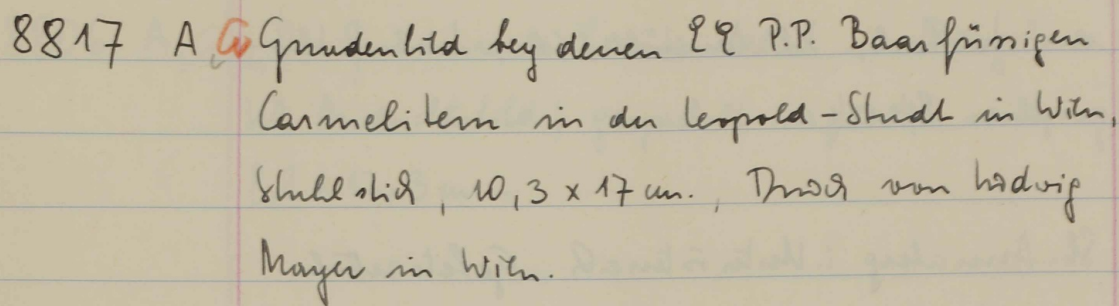 8817 A G Gnadenbild bey denen EE P.P. Baarfüssigen
Carmelitern in der Leopold-Stadt in Wien,
Stahlstich, 10,3 x 17 cm., Druck von Ludwig
Mayer in Wien.